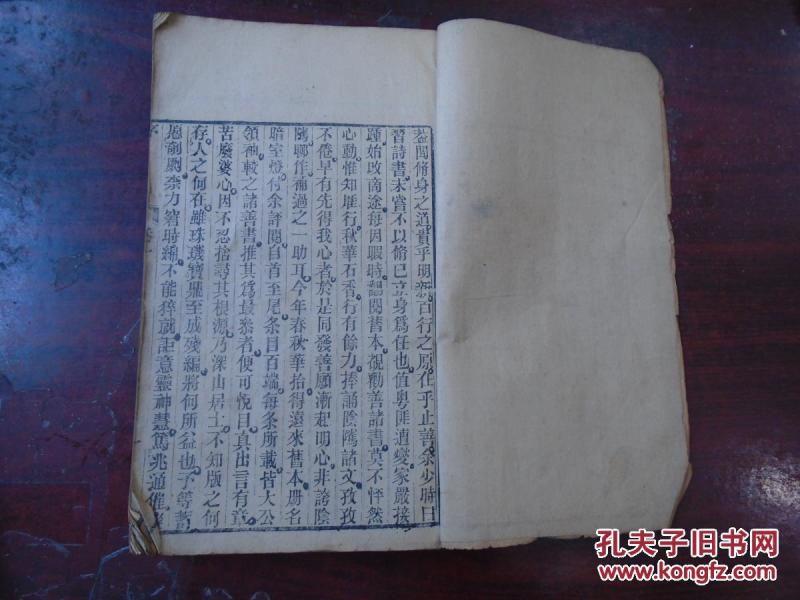 蓋聞脩身之道貴乎明新百行之原在乎止善余少時日
習詩書未嘗不以脩已立身爲任也值粤匪遭變家嚴接
踵始改南途每因暇時翻閱舊本視勸善諸書莫不怦然
心動惟知堆行秋華石香行有餘力捧誦陰隲諸文孜孜
不倦早有先得我心者於是同發善願漸起明心非誇陰
隲聊作補過之一助耳今年春秋華拾得遠來舊本册名
暗室燈付余評閱自首至尾条目百端每条所載皆大公
領神較之諸善書推其爲最樂者便可悅目真出言有章
苦廢婆心因不忍捨尋其根源乃深山居士不知版之何
存人之何在雖珠璣寶飛至成殘編將何所益也予等蓄
剞劂柰力窘時綿不能猝就詎意靈神慧篤兆通催
孔夫子旧书网
www.kongfz.com